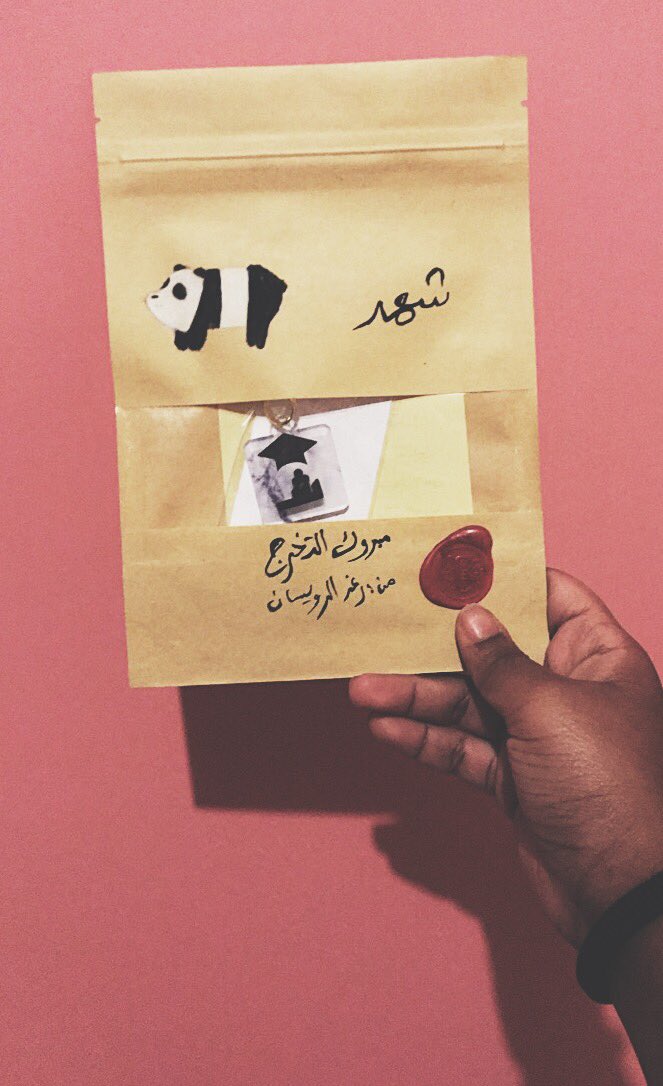 شهد
مبروك التخرج
من: رغد الرويسان